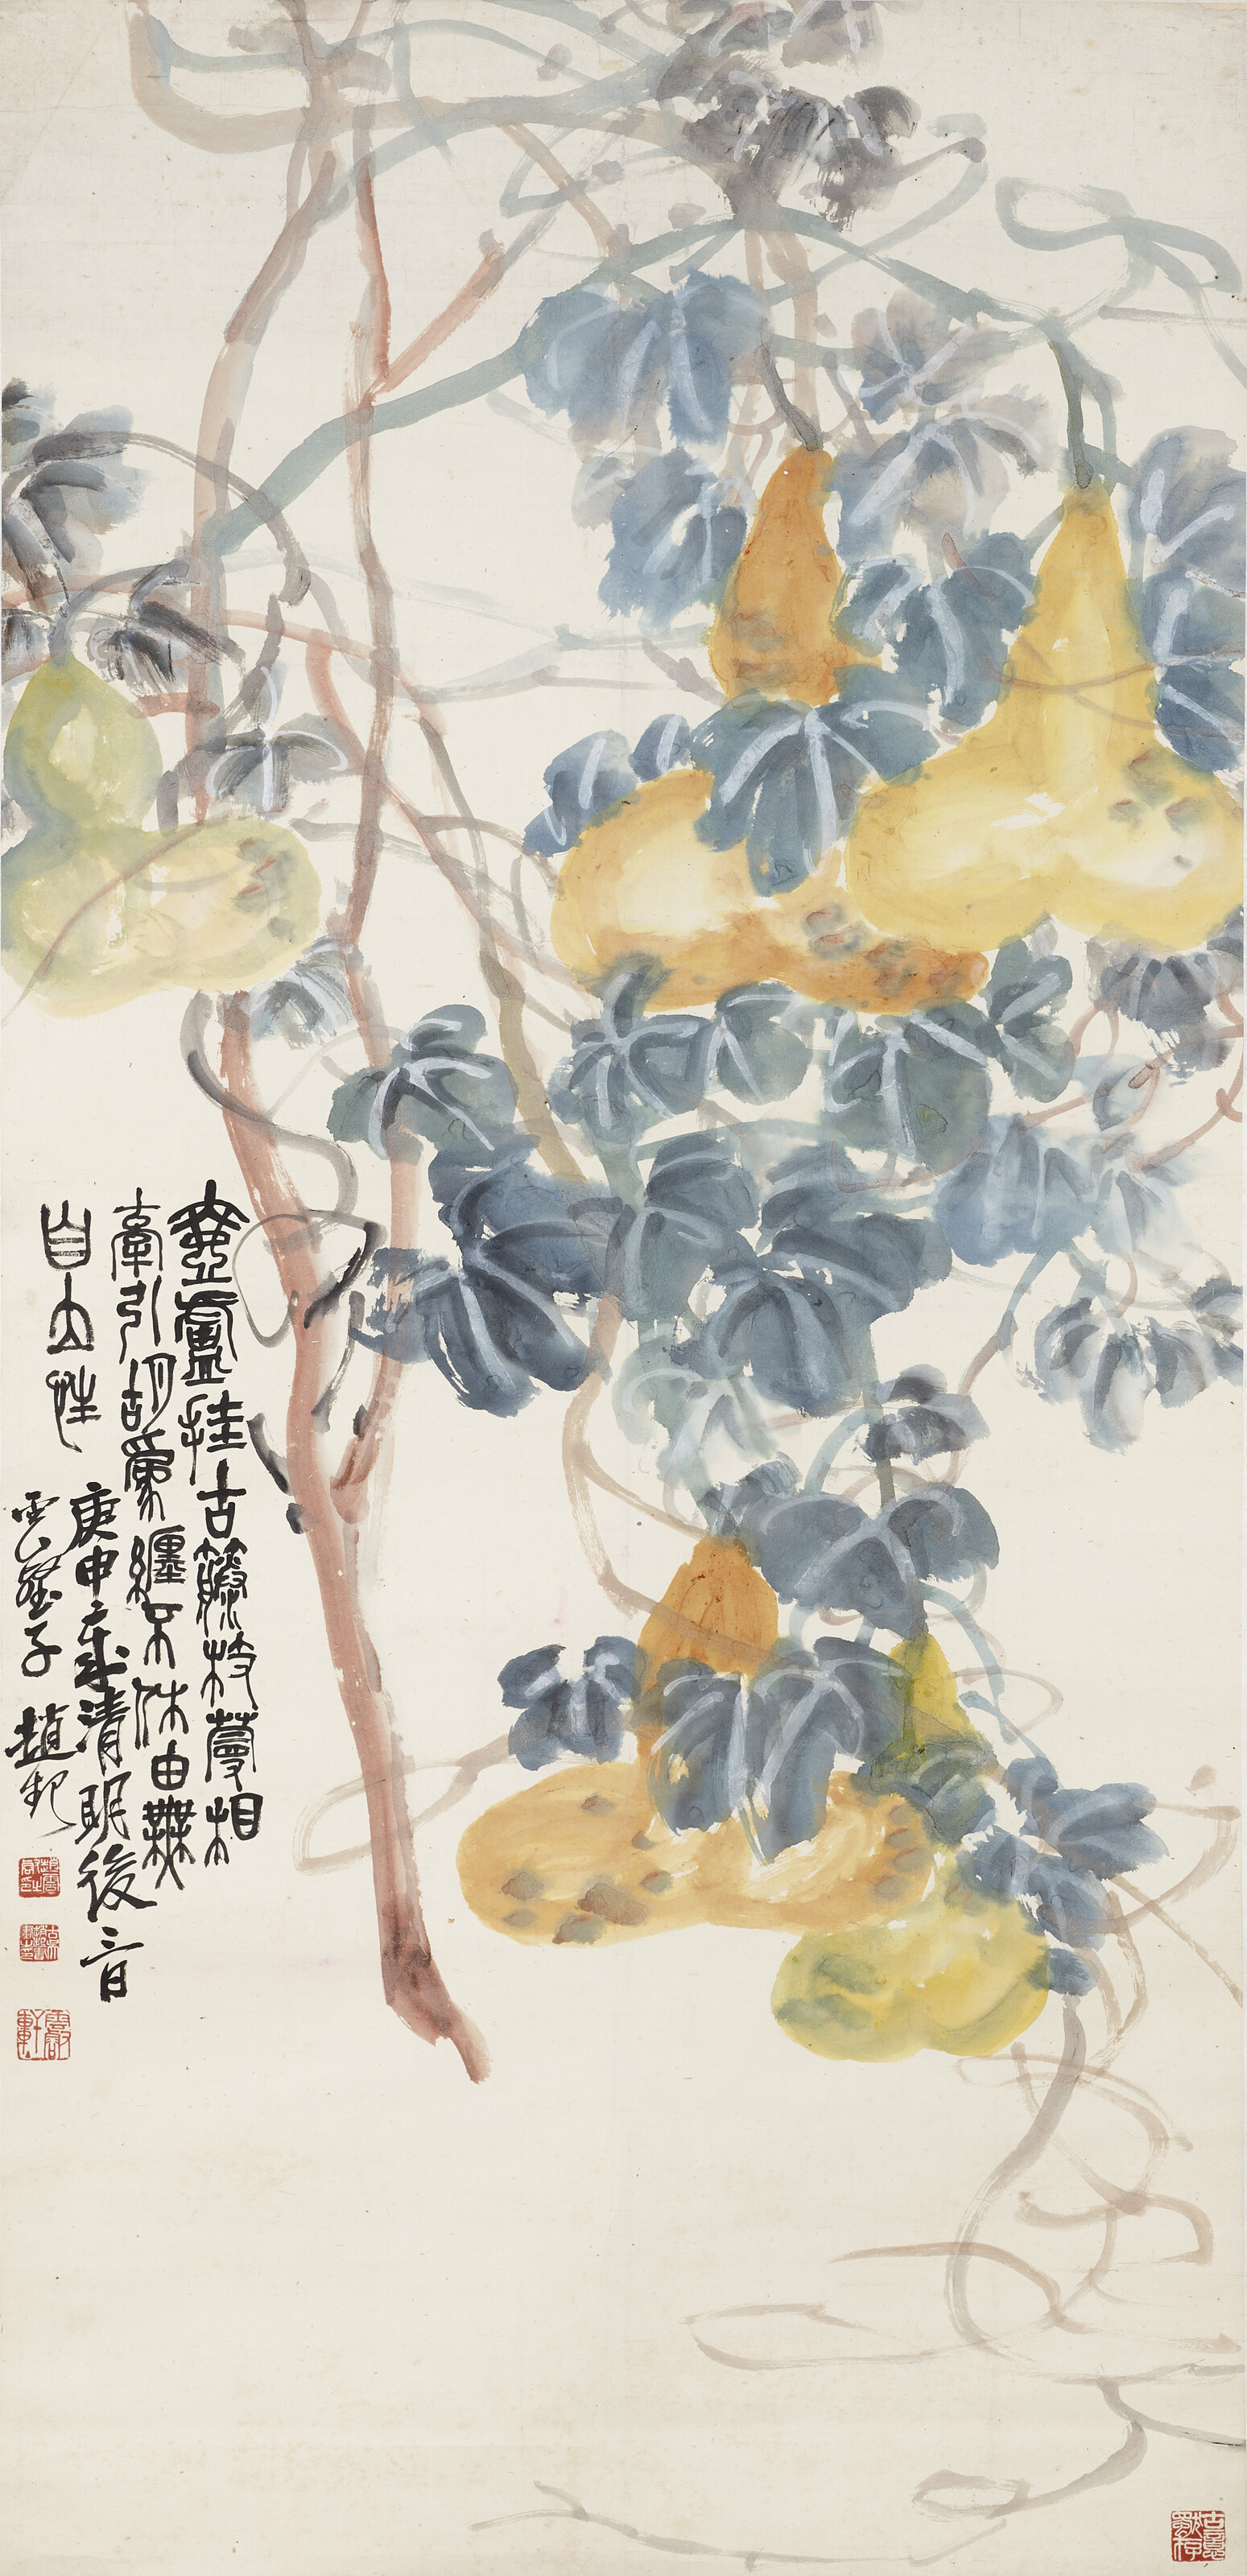 壺盧挂古藤枝蔓相
牽引胡爲纏不休由無
自立性
庚申年清明後三日
雲壑子趙起